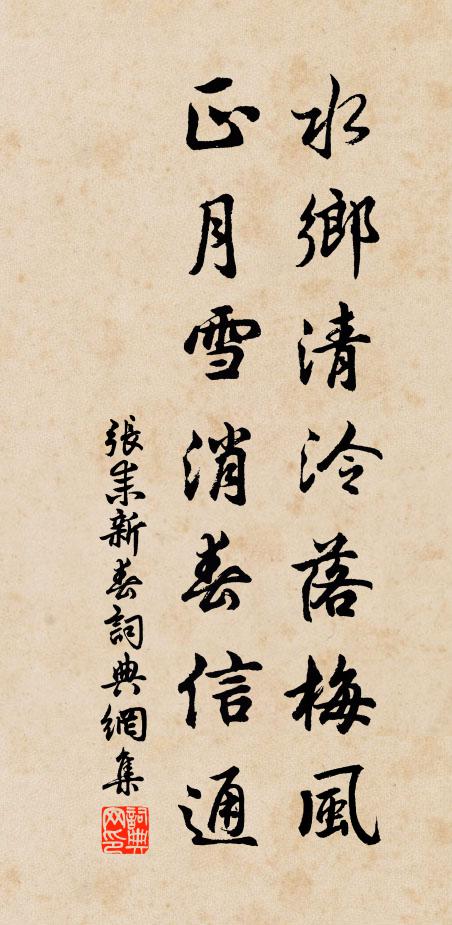 水鄉清泠落梅風
正月雪消春信通
張耒新春詞典網集
詞典網印